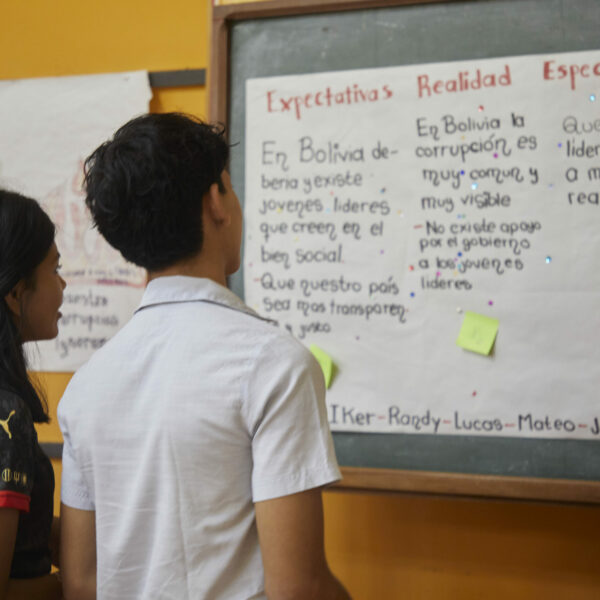 Expectativas
En Bolivia de-
beria y existe
jovenes lideres
que creen en el
bien social.
- Que nuestro país
sea mas transparen.
y justo
Realidad
En Bolivia la
corrupción es
muy comun y
muy visible
- No existe apoyo
por el gobierno
a los jovenes
lideres
Espec
Que
lider
a m
rea
IKer-Randy-Lucas-Mateo-J